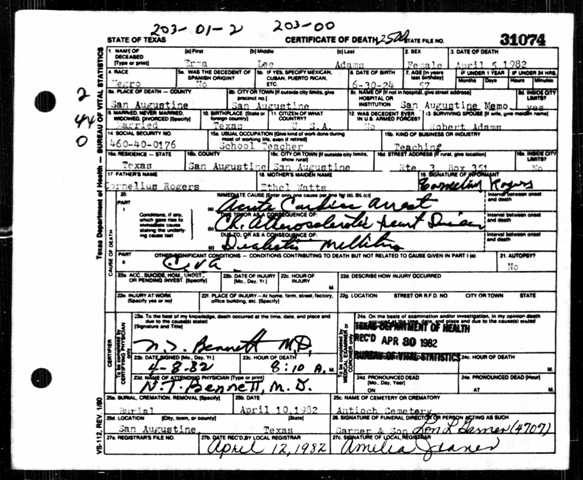 203-01-2 203-00
STATE OF TEXAS CERTIFICATE OF DEATH STATE FILE NO. 31074
1. NAME OF DECEASED (Type or print) (a) First (b) Middle (c) Last 2. SEX 3. DATE OF DEATH
Erma Lee Adams Female April 5, 1982
4. RACE 5a. WAS THE DECEDENT OF SPANISH ORIGIN? 5b. IF YES, SPECIFY MEXICAN, CUBAN, PUERTO RICAN, ETC. 6. DATE OF BIRTH 7. AGE (In years last birthday) IF UNDER 1 YEAR IF UNDER 24 HRS.
Months Days Hours Minutes
Negro No 6-30-24 57
8a. PLACE OF DEATH — COUNTY 8b. CITY OR TOWN (If outside city limits, give precinct no.) 8c. NAME OF (If not in hospital, give street address) HOSPITAL OR INSTITUTION 8d. INSIDE CITY LIMITS?
San Augustine San Augustine San Augustine Memo. yes
9. MARRIED, NEVER MARRIED, WIDOWED, DIVORCED (Specify) 10. BIRTHPLACE (State or foreign country) 11. CITIZEN OF WHAT COUNTRY? 12. WAS DECEDENT EVER IN U.S. ARMED FORCES? 13. SURVIVING SPOUSE (If wife, give maiden name)
Married Texas U. S. A. No Robert Adams
14. SOCIAL SECURITY NO. 15a. USUAL OCCUPATION (Give kind of work done during most of working life, even if retired) 15b. KIND OF BUSINESS OR INDUSTRY
460-40-0176 School Teacher Teaching
16a. RESIDENCE — STATE 16b. COUNTY 16c. CITY OR TOWN (If outside city limits, show rural) 16d. STREET ADDRESS (If rural, give location) 16e. INSIDE CITY LIMITS?
Texas San Augustine San Augustine Rte. 3 Box 351 No
17. FATHER'S NAME 18. MOTHER'S MAIDEN NAME 19. SIGNATURE OF INFORMANT
Cornelius Rogers Ethel Watts Cornelius Rogers
20. PART I IMMEDIATE CAUSE (Enter only one cause per line for (a), (b), and (c).) Interval between onset and death
(a) Acute Cardiac Arrest
Conditions, if any, which gave rise to immediate cause stating the underlying cause last
DUE TO, OR AS A CONSEQUENCE OF: Interval between onset and death
(b) Ch. Atherosclerotic Heart Disease
DUE TO, OR AS A CONSEQUENCE OF: Interval between onset and death
(c) Diabetes Mellitus
PART II OTHER SIGNIFICANT CONDITIONS — CONDITIONS CONTRIBUTING TO DEATH BUT NOT RELATED TO CAUSE GIVEN IN PART I (a) 21. AUTOPSY?
CVA No
22a. ACC., SUICIDE, HOM., UNDET., OR PENDING INVEST. (Specify) 22b. DATE OF INJURY (Mo., Day, Yr.) 22c. HOUR OF INJURY 22d. DESCRIBE HOW INJURY OCCURRED
22e. INJURY AT WORK (Specify yes or no) 22f. PLACE OF INJURY — At home, farm, street, factory, office building, etc. (Specify) 22g. LOCATION STREET OR R.F.D. NO. CITY OR TOWN STATE
23a. To the best of my knowledge, death occurred at the time, date, and place and due to the cause(s) stated. (Signature and Title)
24a. On the basis of examination and/or investigation, in my opinion death occurred at the time, date and place and due to the cause(s) stated.
N. T. Bennett MD.
TEXAS DEPARTMENT OF HEALTH
REC'D APR 30 1982
BUREAU OF VITAL STATISTICS
23b. DATE SIGNED (Mo., Day, Yr.) 23c. HOUR OF DEATH 24c. HOUR OF DEATH
4-8-82 8:10 A.
23d. NAME OF ATTENDING PHYSICIAN (Type or Print) 24d. PRONOUNCED DEAD (Mo., Day, Year) 24e. PRONOUNCED DEAD (Hour)
N. T. Bennett, M. D. ON AT
25a. BURIAL, CREMATION, REMOVAL (Specify) 25b. DATE 25c. NAME OF CEMETERY OR CREMATORY
Burial April 10, 1982 Antioch Cemetery
25d. LOCATION (City, town, or county) (State) 26. SIGNATURE OF FUNERAL DIRECTOR OR PERSON ACTING AS SUCH
San Augustine, Texas Garner & Son (4707)
27a. REGISTRAR'S FILE NO. 27b. DATE REC'D BY LOCAL REGISTRAR 27c. SIGNATURE OF LOCAL REGISTRAR
April 12, 1982 Amelia
Texas Department of Health — BUREAU OF VITAL STATISTICS
VS-112, REV. 1/80
CAUSE OF DEATH
CERTIFIER
2
44
0